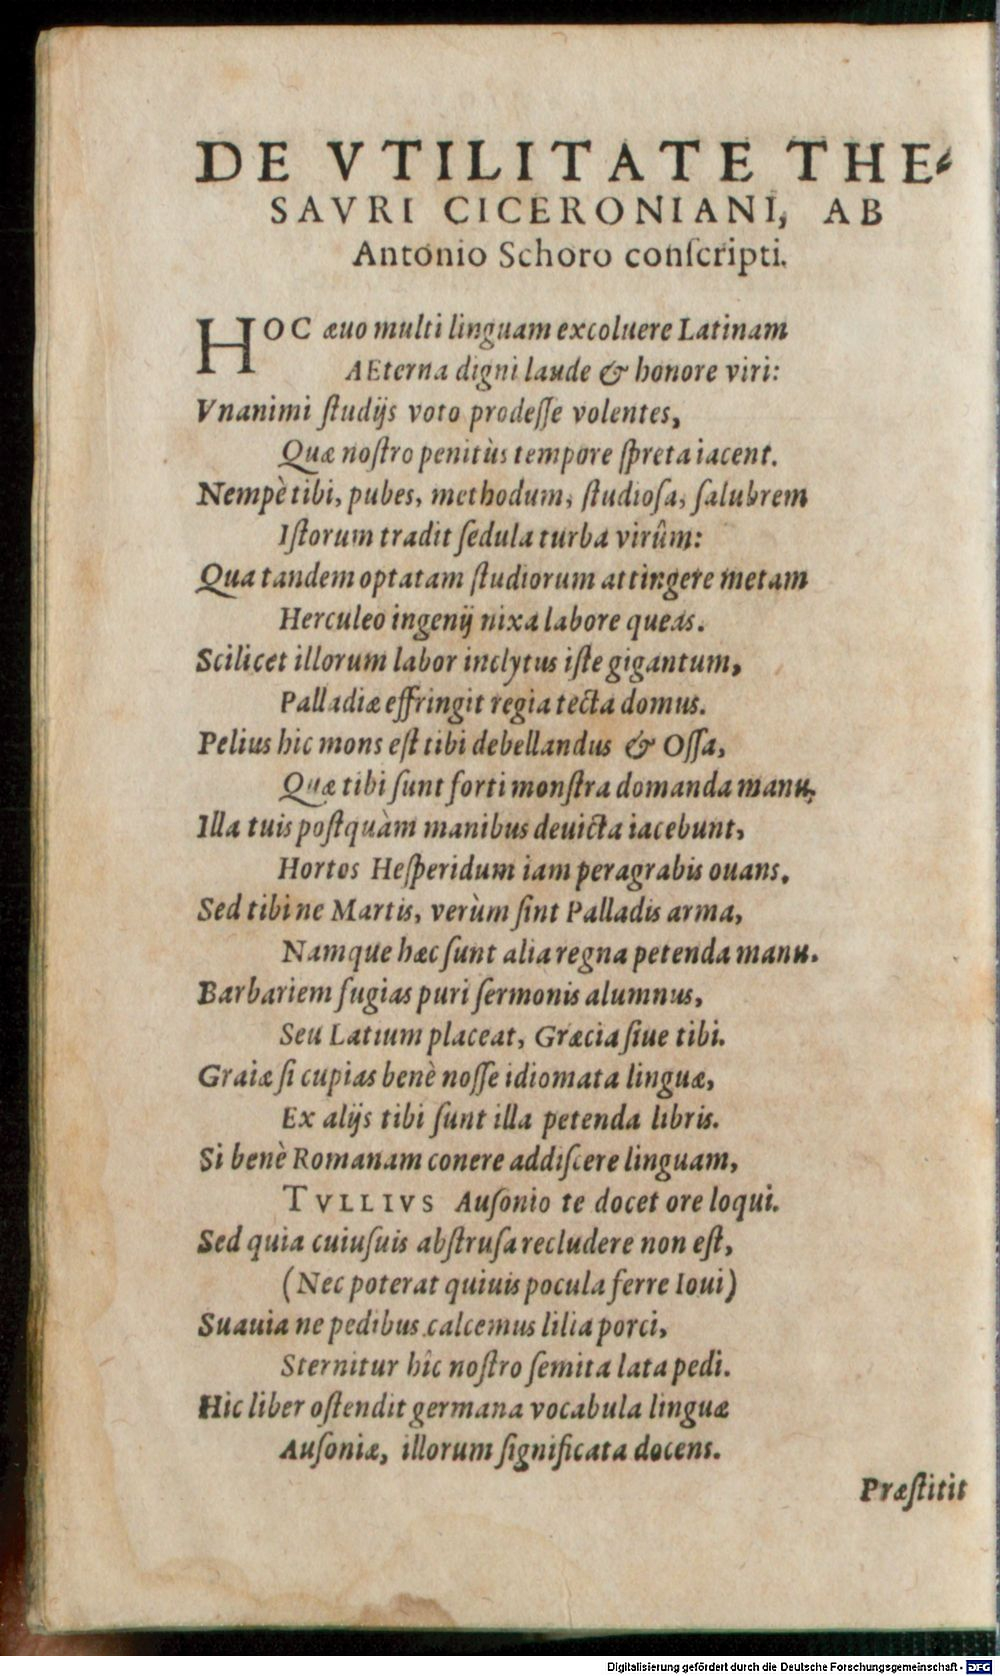 DE VTILITATE THE-
SAVRI CICERONIANI, AB
Antonio Schoro conſcripti.
HOC æuo multi linguam excoluere Latinam
AEterna digni laude & honore viri:
Vnanimi ſtudijs voto prodeſſe volentes,
Quæ noſtro penitùs tempore ſpreta iacent.
Nempè tibi, pubes, methodum, ſtudioſa, ſalubrem
Iſtorum tradit ſedula turba virûm:
Qua tandem optatam ſtudiorum attingere metam
Herculeo ingenij nixa labore queas.
Scilicet illorum labor inclytus iſte gigantum,
Palladiæ effringit regia tecta domus.
Pelius hic mons eſt tibi debellandus & Oſſa,
Quæ tibi ſunt forti monſtra domanda manu,
Illa tuis poſtquàm manibus deuicta iacebunt,
Hortos Heſperidum iam peragrabis ouans.
Sed tibi ne Martis, verùm ſint Palladis arma,
Namque hæc ſunt alia regna petenda manu.
Barbariem fugias puri ſermonis alumnus,
Seu Latium placeat, Græcia ſiue tibi.
Graiæ ſi cupias benè noſſe idiomata linguæ,
Ex alijs tibi ſunt illa petenda libris.
Si benè Romanam conere addiſcere linguam,
TVLLIVS Auſonio te docet ore loqui.
Sed quia cuiuſuis abſtruſa recludere non eſt,
(Nec poterat quiuis pocula ferre Ioui)
Suauia ne pedibus calcemus lilia porci,
Sternitur hîc noſtro ſemita lata pedi.
Hic liber oſtendit germana vocabula linguæ
Auſoniæ, illorum ſignificata docens.
Præſtitit
Digitalisierung gefördert durch die Deutsche Forschungsgemeinschaft - DFG